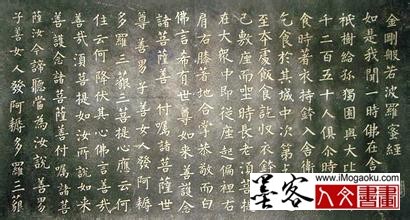 金剛般若波羅蜜經
如是我聞一時佛在舍
祇樹給孤獨園與大比
千二百五十人俱尒時
食時著衣持鉢入舍衛
乞食於其城中次第
至本處飯食訖収衣
已敷座而坐時長老須菩
在大衆中即從座起偏袒右
肩右膝著地合掌恭敬而白
佛言希有世尊如来善護念
諸菩薩善付囑諸菩薩世
尊善男子善女人發阿耨
多羅三藐三菩提心應云何
住云何降伏其心佛言善哉善
哉須菩提如汝所說如来
善護念諸菩薩善付囑諸菩
薩汝今諦聽當為汝說善男
子善女人發阿耨多羅三藐
墨客
www.iMogaoku.com
人文書畫